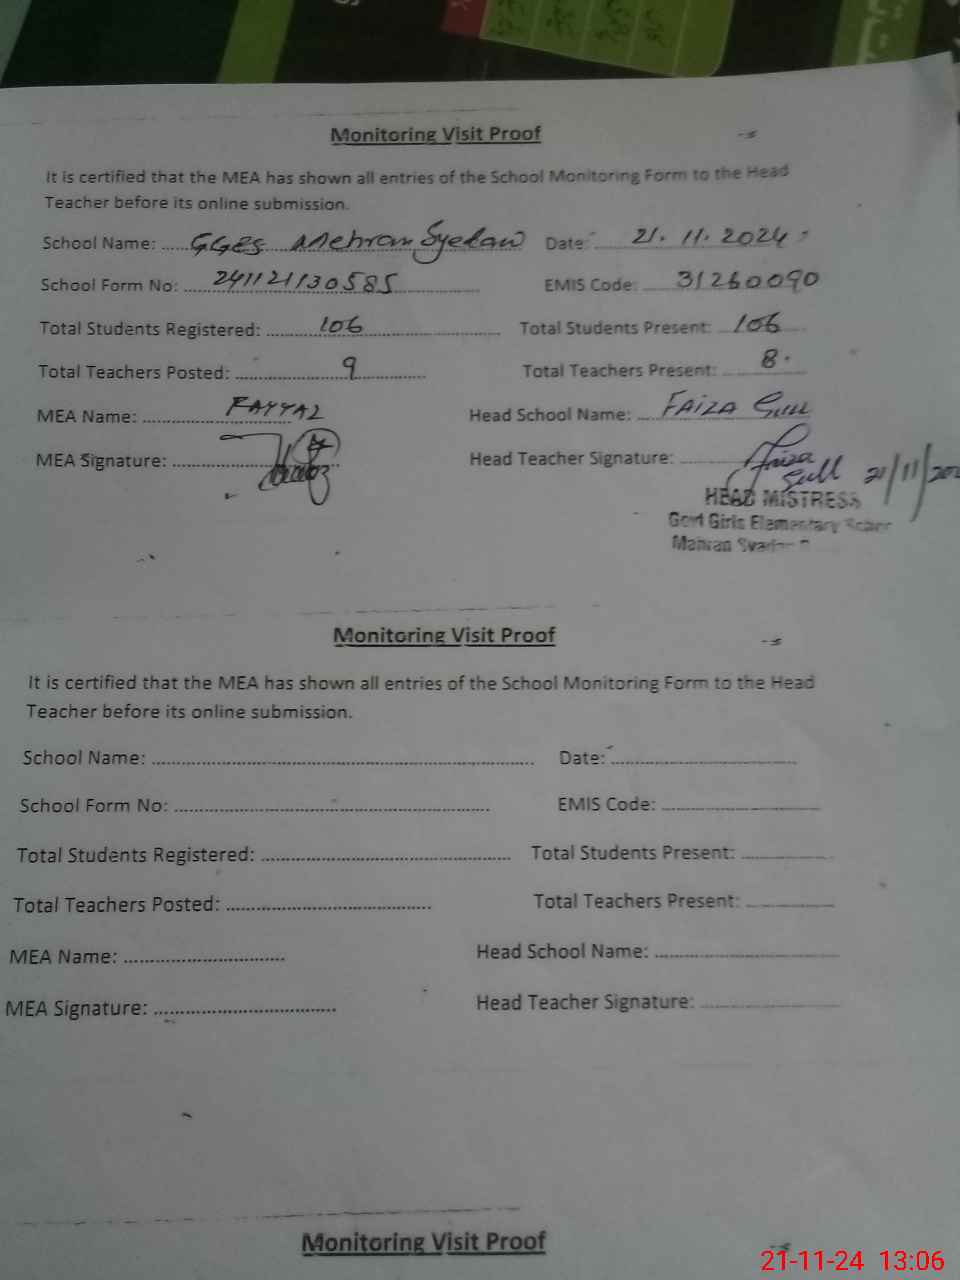 Monitoring Visit Proof
It is certified that the MEA has shown all entries of the School Monitoring Form to the Head
Teacher before its online submission.
School Name: GGES Mehran Syedaw Date: 21.11.2024
School Form No: 241121130585 EMIS Code: 31260090
Total Students Registered: 106 Total Students Present: 106
Total Teachers Posted: 9 Total Teachers Present: 8
MEA Name: FAYYAZ Head School Name: FAIZA GULL
MEA Signature: Head Teacher Signature: Faiza
Gull 21/11/202
HEAD MISTRESS
Govt Girls Elementary
Monitoring Visit Proof
It is certified that the MEA has shown all entries of the School Monitoring Form to the Head
Teacher before its online submission.
School Name: Date:
School Form No: EMIS Code:
Total Students Registered: Total Students Present:
Total Teachers Posted: Total Teachers Present:
MEA Name: Head School Name:
MEA Signature: Head Teacher Signature:
Monitoring Visit Proof
21-11-24 13:06